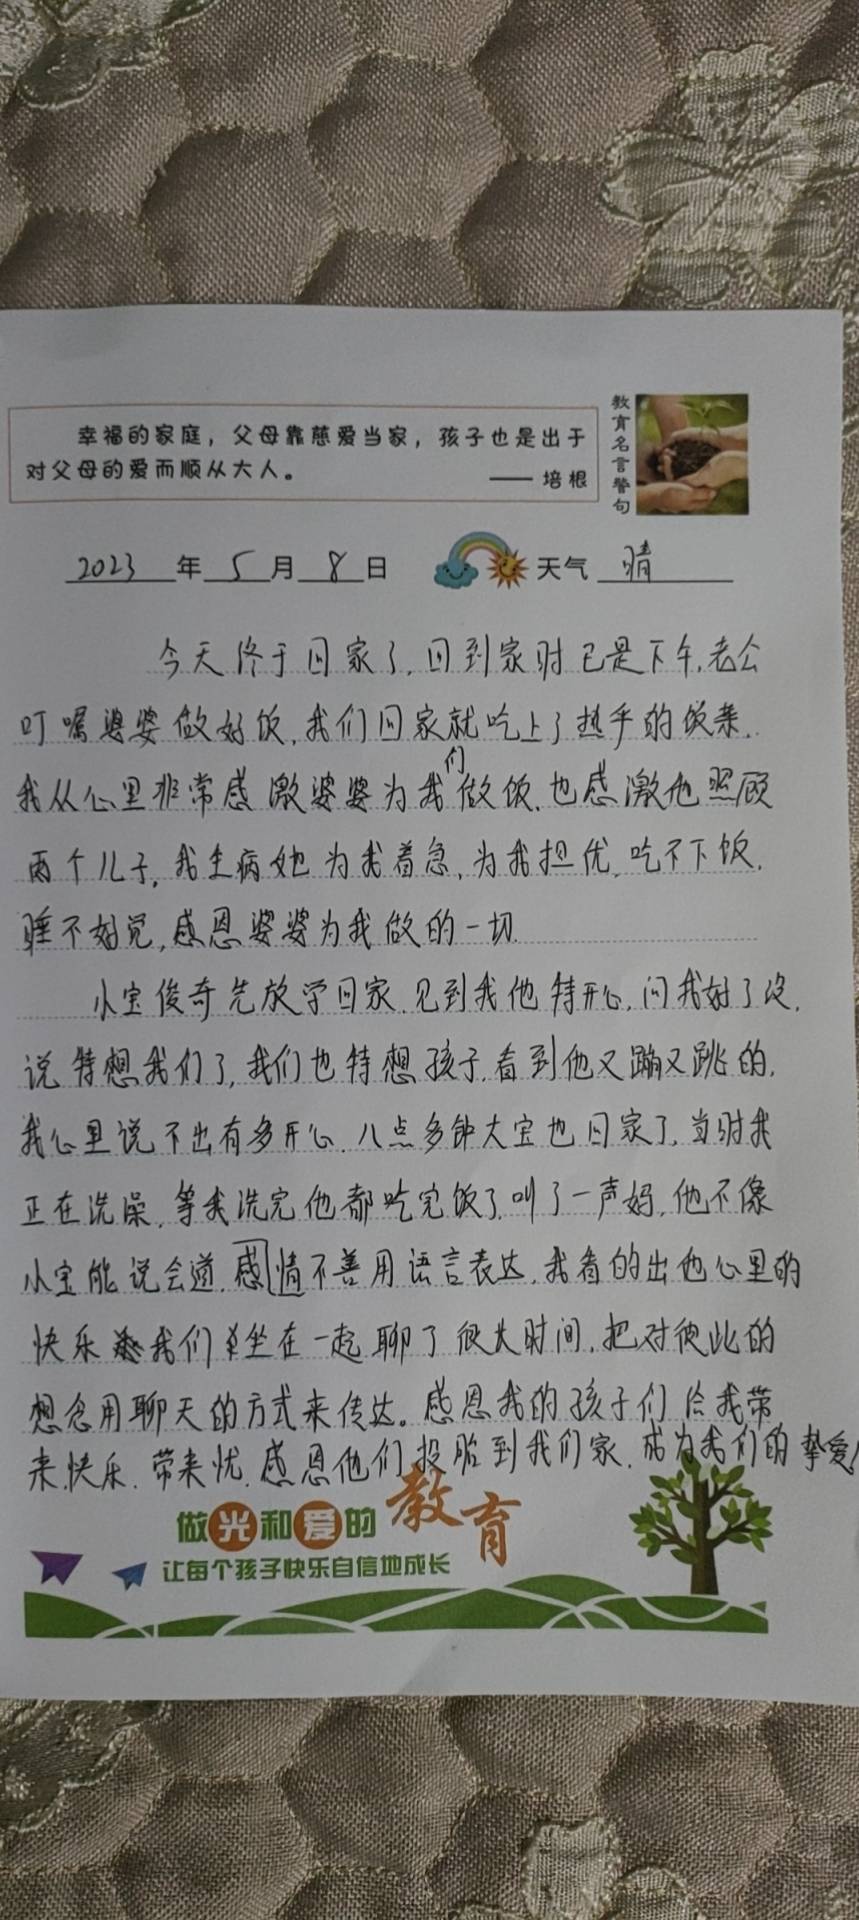 幸福的家庭，父母靠慈爱当家，孩子也是出于
对父母的爱而顺从大人。
—— 培根
教育名言警句
2023年5月8日 天气 晴
今天终于回家了,回到家时已是下午,老公
叮嘱婆婆做好饭,我们回家就吃上了热乎的饭菜.
我从心里非常感激婆婆为我们做饭.也感激他照顾
两个儿子,我生病她为我着急,为我担优,吃不下饭,
睡不好觉,感恩婆婆为我做的一切.
小宝俊奇先放学回家.见到我他特开心,问我好了没,
说特想我们了,我们也特想孩子.看到他又蹦又跳的,
我心里说不出有多开心.八点多钟大宝也回家了,当时我
正在洗澡,等我洗完他都吃完饭了,叫了一声妈,他不像
小宝能说会道.感情不善用语言表达.我看的出他心里的
快乐 我们坐在一起聊了很长时间,把对彼此的
想念用聊天的方式来传达。感恩我的孩子们给我带
来快乐.带来忧.感恩他们投胎到我们家.成为我们的挚爱!
做光和爱的教育
让每个孩子快乐自信地成长